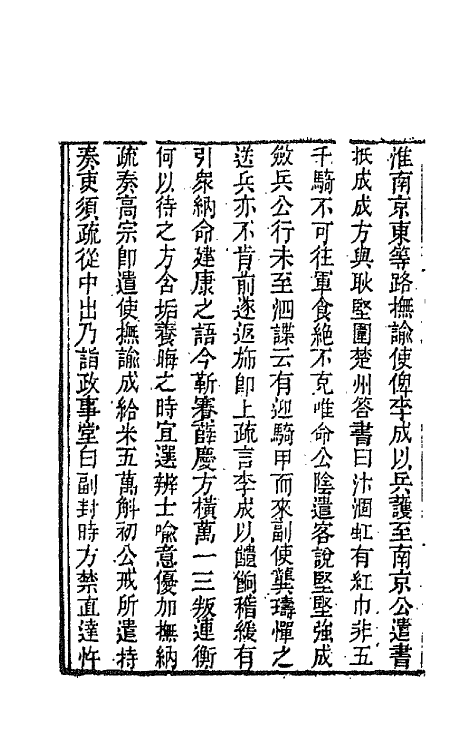 淮南京東等路撫諭使俾李成以兵護至南京公遣書
抵成成方與耿堅圍楚州答書曰汴涸虹有紅巾非五
千騎不可往軍食絕不克唯命公陰遣客說堅堅強成
斂兵公行未至泗諜云有迎騎甲而來副使龔璹憚之
送兵亦不肯前遂返旆即上疏言李成以餽餉稽緩有
引衆納命建康之語今靳賽薛慶方橫萬一三叛連衡
何以待之方含垢養晦之時宜選辨士喻意優加撫納
疏奏高宗即遣使撫諭成給米五萬斛初公戒所遣持
奏吏須疏從中出乃詣政事堂白副封時方禁直達忤